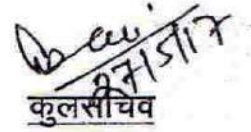 27/5/17
कुलसचिव